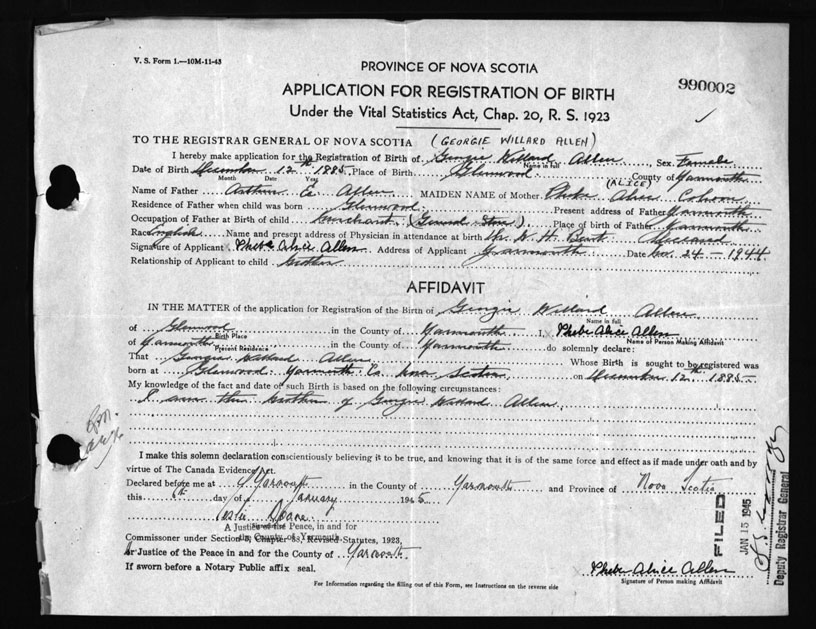 V. S. Form 1.—10M-11-43
PROVINCE OF NOVA SCOTIA
990002
APPLICATION FOR REGISTRATION OF BIRTH
Under the Vital Statistics Act, Chap. 20, R. S. 1923
TO THE REGISTRAR GENERAL OF NOVA SCOTIA (GEORGIE WILLARD ALLEN)
I hereby make application for the Registration of Birth of Georgie Willard Allen Sex Female
Name in full
Date of Birth December 12th 1885 Place of Birth Glenwood County of Yarmouth
Month Date Year
(ALICE)
Name of Father Arthur E. Allen MAIDEN NAME of Mother Phebe Alice
Residence of Father when child was born Glenwood Present address of Father Yarmouth
Occupation of Father at Birth of child merchant (General Store) Place of birth of Father Yarmouth
Race English Name and present address of Physician in attendance at birth H. Deceased
Signature of Applicant Phebe Alice Allen Address of Applicant Yarmouth Date Nov. 24 - 1944
Relationship of Applicant to child Mother
AFFIDAVIT
IN THE MATTER of the application for Registration of the Birth of Georgie Willard Allen
Name in full
of Glenwood in the County of Yarmouth I, Phebe Alice Allen
Birth Place Name of Person Making Affidavit
of Yarmouth in the County of Yarmouth do solemnly declare:
Present Residence
That Georgie Willard Allen Whose Birth is sought to be registered was
born at Glenwood Yarmouth Co. Nova Scotia on December 12th 1885
My knowledge of the fact and date of such Birth is based on the following circumstances:
I am the Mother of Georgie Willard Allen
I make this solemn declaration conscientiously believing it to be true, and knowing that it is of the same force and effect as if made under oath and by
virtue of The Canada Evidence Act.
Declared before me at Yarmouth in the County of Yarmouth and Province of Nova Scotia
this 6th day of January 1945
Leslie Doane
A Justice of the Peace, in and for
the County of Yarmouth
Commissioner under Section 3, Chapter 38, Revised Statutes, 1923,
or Justice of the Peace in and for the County of Yarmouth
If sworn before a Notary Public affix seal.
Phebe Alice Allen
Signature of Person making Affidavit
For Information regarding the filling out of this Form, see Instructions on the reverse side
FILED
JAN 15 1945
Deputy Registrar General